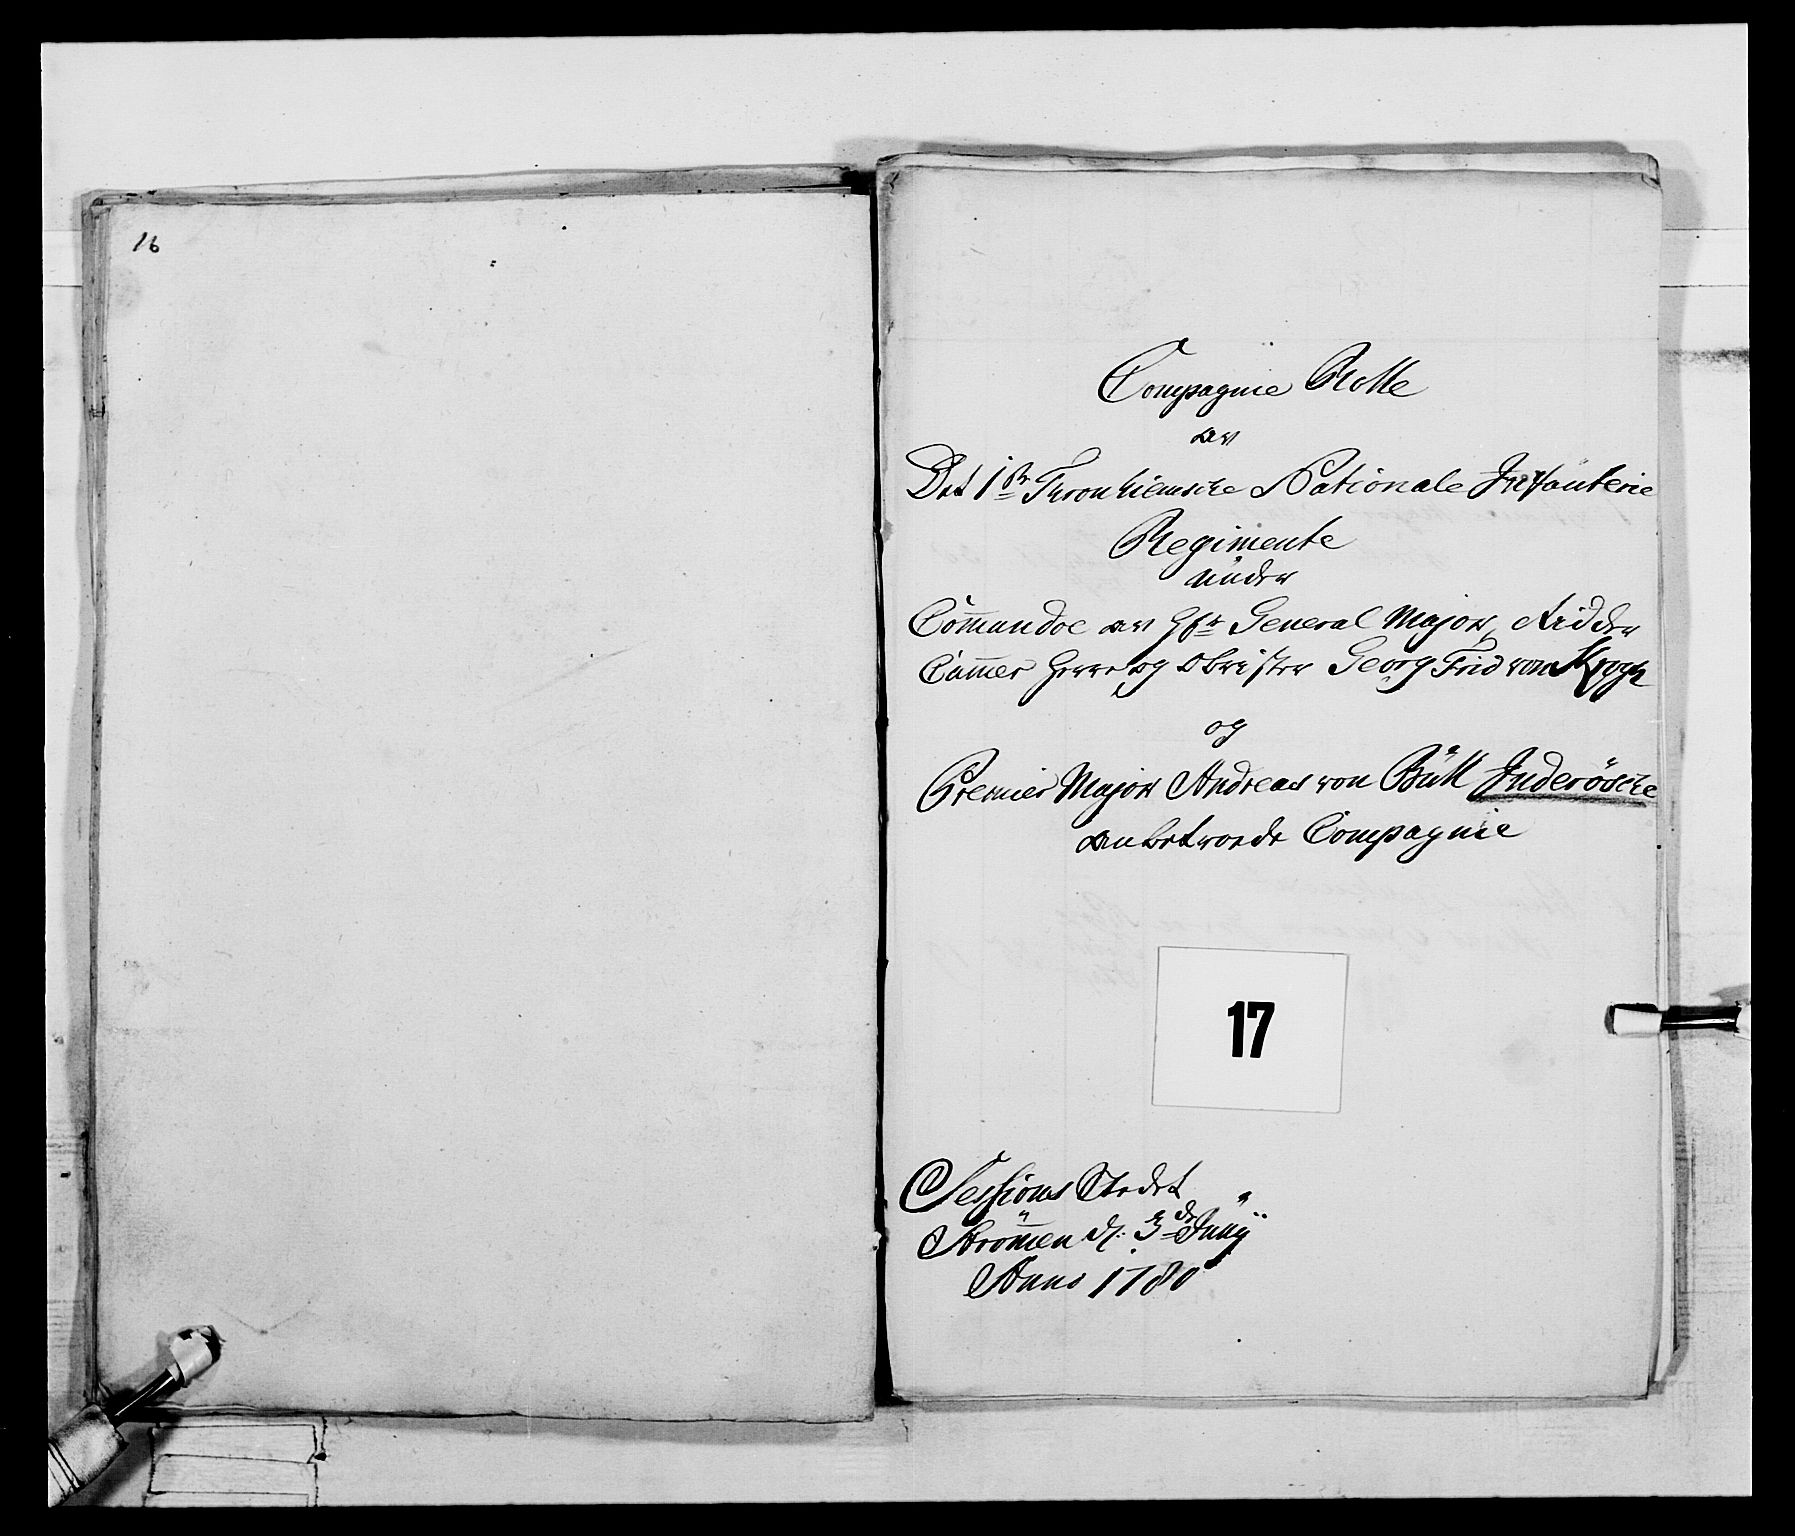 16
Compagnie Rolle
av
Det 1ste Tronhiemsche Nationale Infanterie
Regimente
under
Commandoe av Hr General Major, Ridder
Cammer Herre og Obrister Georg Frid von Krogh
og
Premier Major Andreas von Bull Inderöische
anbetroede Compagnie
17
Sessions Stedet
Strömmen d. 3de Juny
Anno 1780